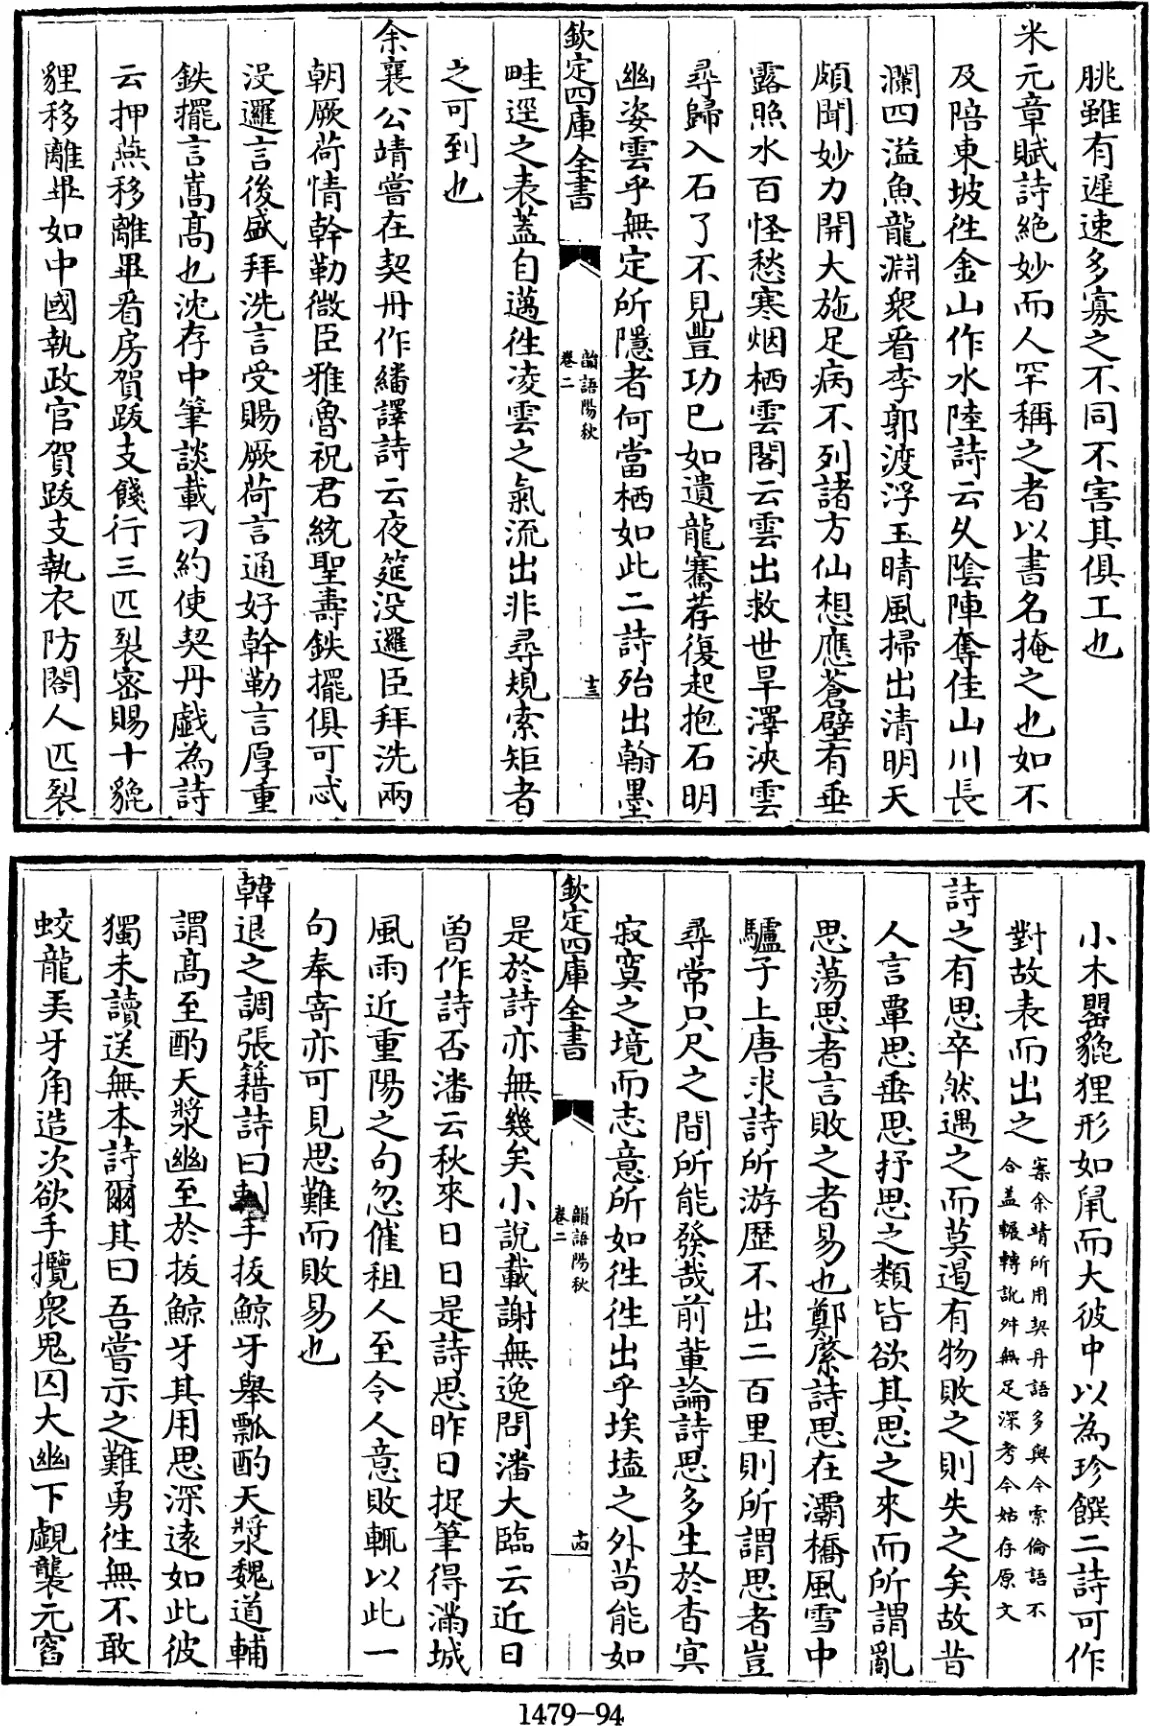 朓雖有遲速多寡之不同不害其俱工也
米元章賦詩絶妙而人罕稱之者以書名掩之也如不
及陪東坡徃金山作水陸詩云久陰陣奪佳山川長
瀾四溢魚龍淵衆看李郭渡浮玉晴風掃出清明天
頗聞妙力開大施足病不列諸方仙想應蒼壁有垂
露照水百怪愁寒烟栖雲閣云雲出救世旱澤浹雲
尋歸入石了不見豐功已如遺龍騫荐復起抱石明
幽姿雲乎無定所隱者何當栖如此二詩殆出翰墨
欽定四庫全書
韻語陽秋
卷二
十三
畦逕之表蓋自邁徃凌雲之氣流出非尋規索矩者
之可到也
余襄公靖嘗在契丹作繙譯詩云夜筵没邏臣拜洗兩
朝厥荷情幹勒微臣雅魯祝君統聖壽鉄擺俱可忒
没邏言後盛拜洗言受賜厥荷言通好幹勒言厚重
鉄擺言嵩髙也沈存中筆談載刁約使契丹戲為詩
云押燕移離畢看房賀跋支餞行三匹裂密賜十貔
貍移離畢如中國執政官賀跋支執衣防閤人匹裂
小木罌貔狸形如鼠而大彼中以為珍饌二詩可作
對故表而出之
案余靖所用契丹語多與今索倫語不
合盖輾轉訛舛無足深考今姑存原文
詩之有思卒然遇之而莫遏有物敗之則失之矣故昔
人言覃思垂思抒思之類皆欲其思之來而所謂亂
思蕩思者言敗之者易也鄭綮詩思在灞橋風雪中
驢子上唐求詩所游歴不出二百里則所謂思者豈
尋常只尺之間所能發哉前輩論詩思多生於杳冥
寂寞之境而志意所如徃徃出乎埃壒之外茍能如
欽定四庫全書
韻語陽秋
卷二
十四
是於詩亦無幾矣小說載謝無逸問潘大臨云近日
曾作詩否潘云秋來日日是詩思昨日捉筆得滿城
風雨近重陽之句忽催租人至令人意敗輒以此一
句奉寄亦可見思難而敗易也
韓退之調張籍詩曰刺手拔鯨牙舉瓢酌天漿魏道輔
謂髙至酌天漿幽至於拔鯨牙其用思深遠如此彼
獨未讀送無本詩爾其曰吾嘗示之難勇徃無不敢
蛟龍美牙角造次欲手攬衆鬼囚大幽下覰襲元窞
1479-94